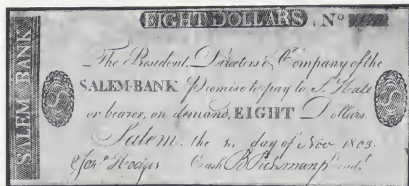 EIGHT DOLLARS, No
SALEM BANK
The President, Directors & Company of the
SALEM-BANK Promise to pay to S. Hale
or bearer, on demand, EIGHT Dollars.
Salem, the day of Nov 1803.
Hodges Cash. B Pickman Presdt